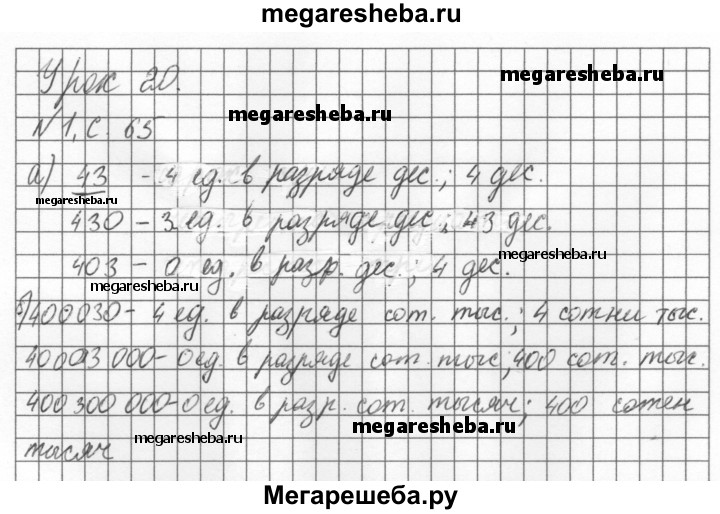 megaresheba.ru
Урок 20.
megaresheba.ru
megaresheba.ru
N1, с. 65
а) 43 - 4 ед. в разряде дес.; 4 дес.
megaresheba.ru
430 - 3 ед. в разряде дес.; 43 дес.
megaresheba.ru
403 - 0 ед. в разр. дес.; 4 дес.
megaresheba.ru
б) 400030 - 4 ед. в разряде сот. тыс.; 4 сотни тыс.
000 - 0 ед. в разряде сот. тыс; 400 сот. тыс.
400 300 000 - 0 ед. в разр. сот. тысяч; 400 сотен
megaresheba.ru
megaresheba.ru
тысяч
Мегарешеба.ру